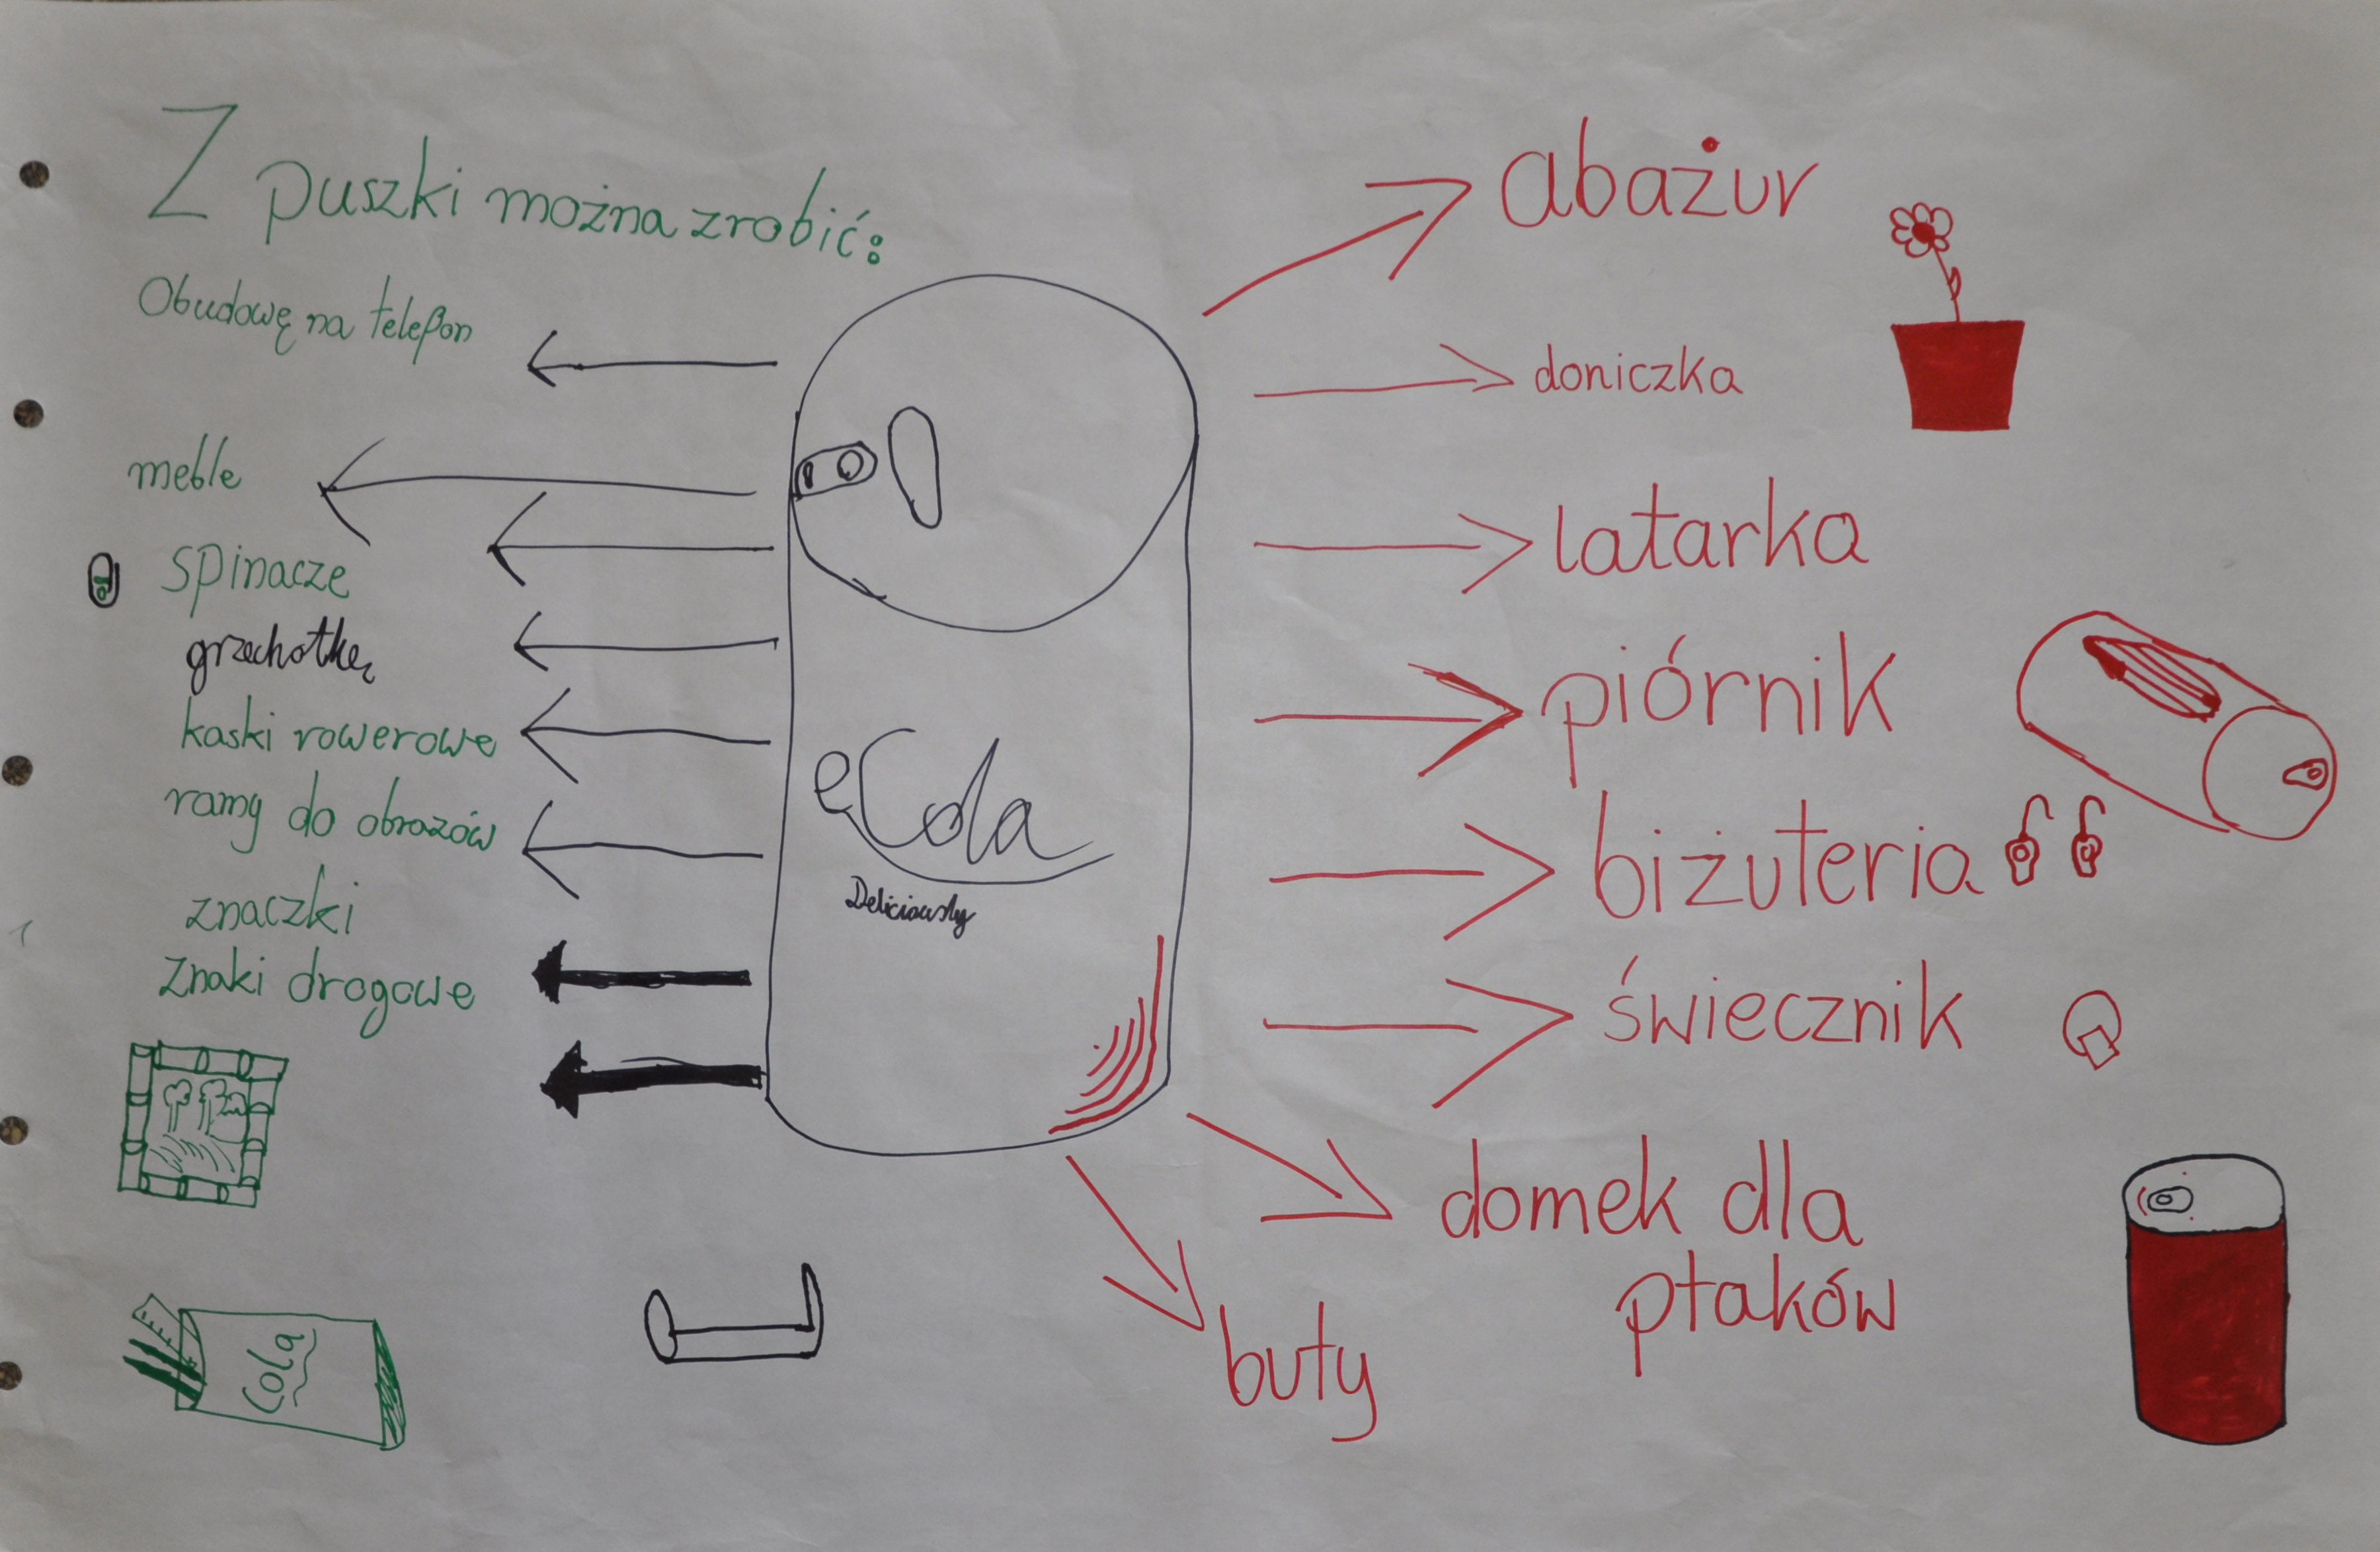 Z puszki można zrobić:
Obudowę na telefon
meble
spinacze
grzechotkę
kaski rowerowe
ramy do obrazów
znaczki
znaki drogowe
Cola
eCola
Deliciously
abażur
doniczka
latarka
piórnik
biżuteria
świecznik
domek dla
ptaków
buty